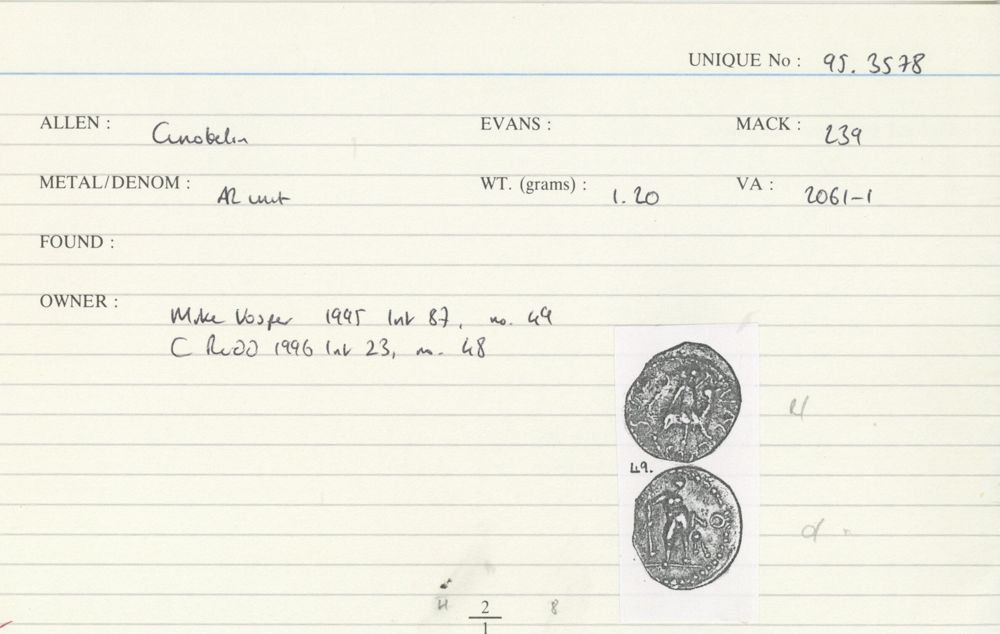 UNIQUE No : 95. 3578
ALLEN : Cunobelin EVANS : MACK : 239
METAL/DENOM : AR unit WT. (grams) : 1.20 VA : 2061-1
FOUND :
OWNER : Mike Vosper 1995 list 87, no. 49
C Rudd 1996 list 23, no. 48
49.
2
1
8